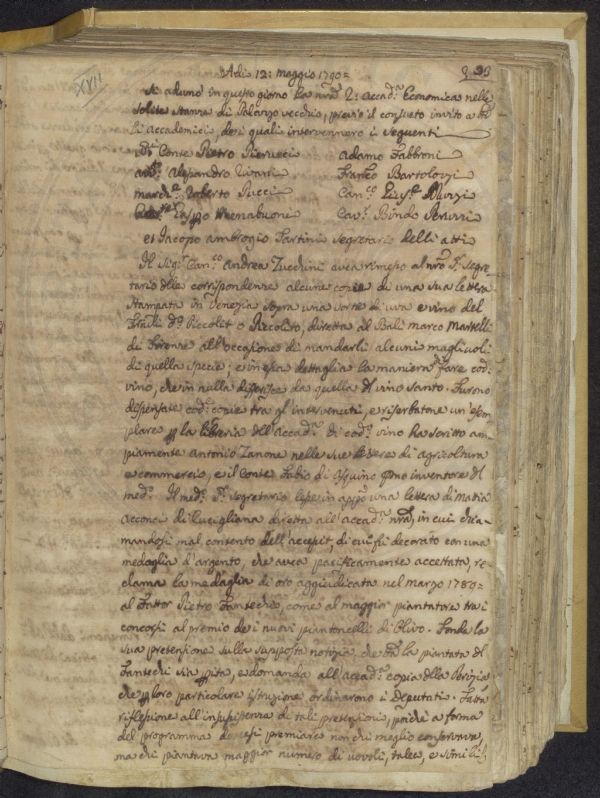 XVII
Adi 12: Maggio 1790=
Si adunò in questo giorno la nr̃a R: Accad.ª Economica nelle
solite stanze di Palazzo vecchio, previo il consueto invito a tutti
li Accademici, de i quali intervennero i seguenti
Conte Pietro Pierucci
Adamo Fabbroni
Alessandro Rivani
Franc.co Bartolozzi
March.e Roberto Pucci
Can.co
Menabuoni
Cav.e Bindo Peruzzi
et Jacopo Ambrogio Tartini Segretario delli atti
Il Sig.r Can.co Andrea Zucchini avea rimesso al nrõ S.r Segre
tario delle corrispondenze alcune copie di una sua lettera
stampata in Venezia sopra una sorte di uva e vino del
Friuli d.º Piccolit o Piccolito, diretta al Balì Marco Martelli
di Firenze all'occasione di mandarli alcuni magliuoli
di quella specie; e in essa dettaglia la maniera di fare cod:
vino, che in nulla differisce da quella del vino santo. Furono
dispensate cod: copie tra gl'intervenuti, e riserbatone un'esem
plare p la libreria dell'Accad.ª di cod: vino ha scritto am
piamente Antonio Zanone nelle sue lettere di agricoltura
e commercio, e il Conte Fabio di Asquino p̃mo inventore del
med.º Il med.º S.r Segretario lesse in app.o una lettera di Mattia
Acconci di Lucigliana diretta all'Accad.ª nr̃a, in cui chia
mandosi mal contento dell'accessit, di cui fu decorato con una
medaglia d'argento, che avea pacificamente accettata, re
clama la medaglia di oro aggiudicata nel Marzo 1789=
al Fattor Pietro Fantechi, come al maggior piantatore tra i
concorsi al premio de i nuovi piantoncelli di Olivo. Fonda la
sua pretensione sulla supposta notizia che tutta la piantata del
Fantechi sia p̃ita, e domanda all'Accad.ª copia della Perizia
che p loro particolare istruzione ordinarono i Deputati. Fatta
riflessione all'insussistenza di tali pretensioni, poichè a forma
del programma devesi premiare non chi meglio conservava,
ma chi piantava maggior numero di uovoli, talee, e simili.